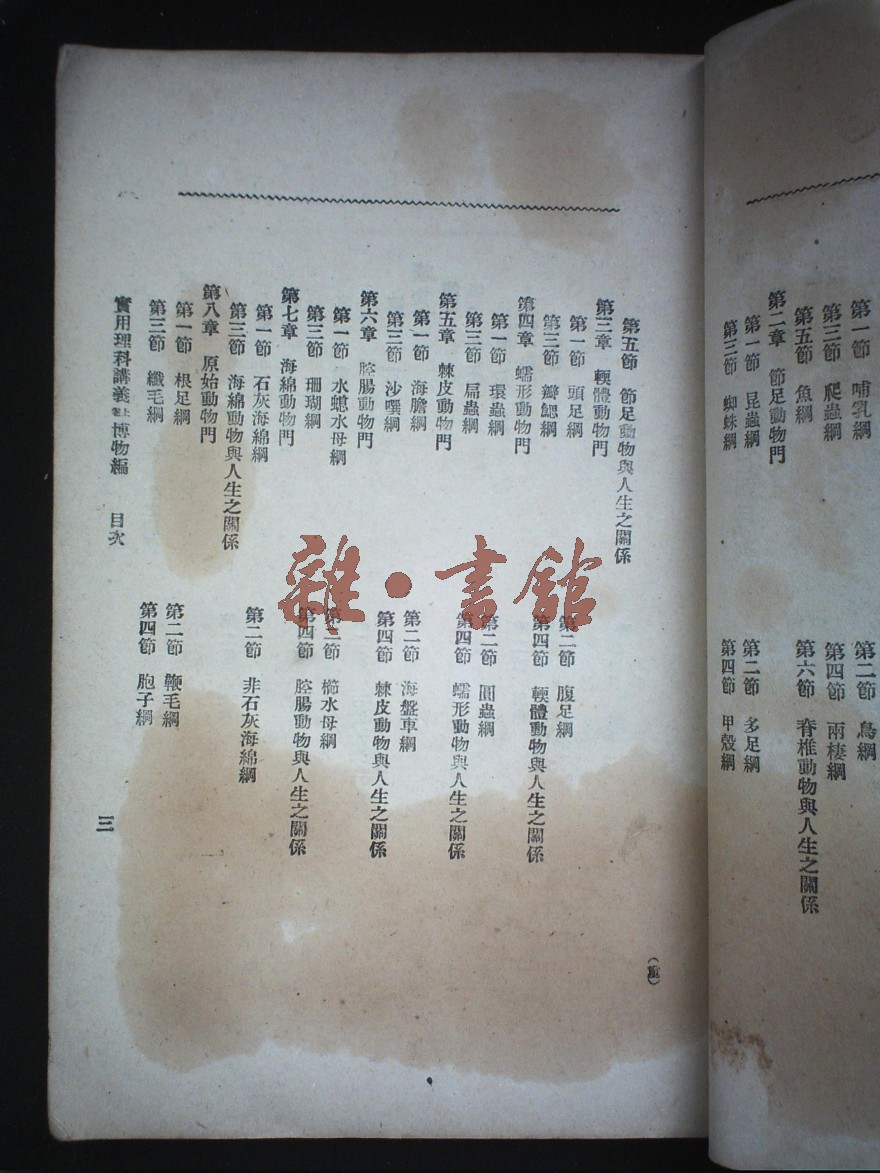 第一節　哺乳綱
第二節　鳥綱
第三節　爬蟲綱
第四節　兩棲綱
第五節　魚綱
第六節　脊椎動物與人生之關係
第二章　節足動物門
第一節　昆蟲綱
第二節　多足綱
第三節　蜘蛛綱
第四節　甲殼綱
第五節　節足動物與人生之關係
第三章　輭體動物門
第一節　頭足綱
第二節　腹足綱
第三節　瓣鰓綱
第四節　輭體動物與人生之關係
第四章　蠕形動物門
第一節　環蟲綱
第二節　圓蟲綱
第三節　扁蟲綱
第四節　蠕形動物與人生之關係
第五章　棘皮動物門
第一節　海膽綱
第二節　海盤車綱
第三節　沙噀綱
第四節　棘皮動物與人生之關係
第六章　腔腸動物門
第一節　水螅水母綱
第二節　櫛水母綱
第三節　珊瑚綱
第四節　腔腸動物與人生之關係
第七章　海綿動物門
第一節　石灰海綿綱
第二節　非石灰海綿綱
第三節　海綿動物與人生之關係
第八章　原始動物門
第一節　根足綱
第二節　鞭毛綱
第三節　纖毛綱
第四節　胞子綱
實用理科講義上卷博物編　目次
三
雜·書館